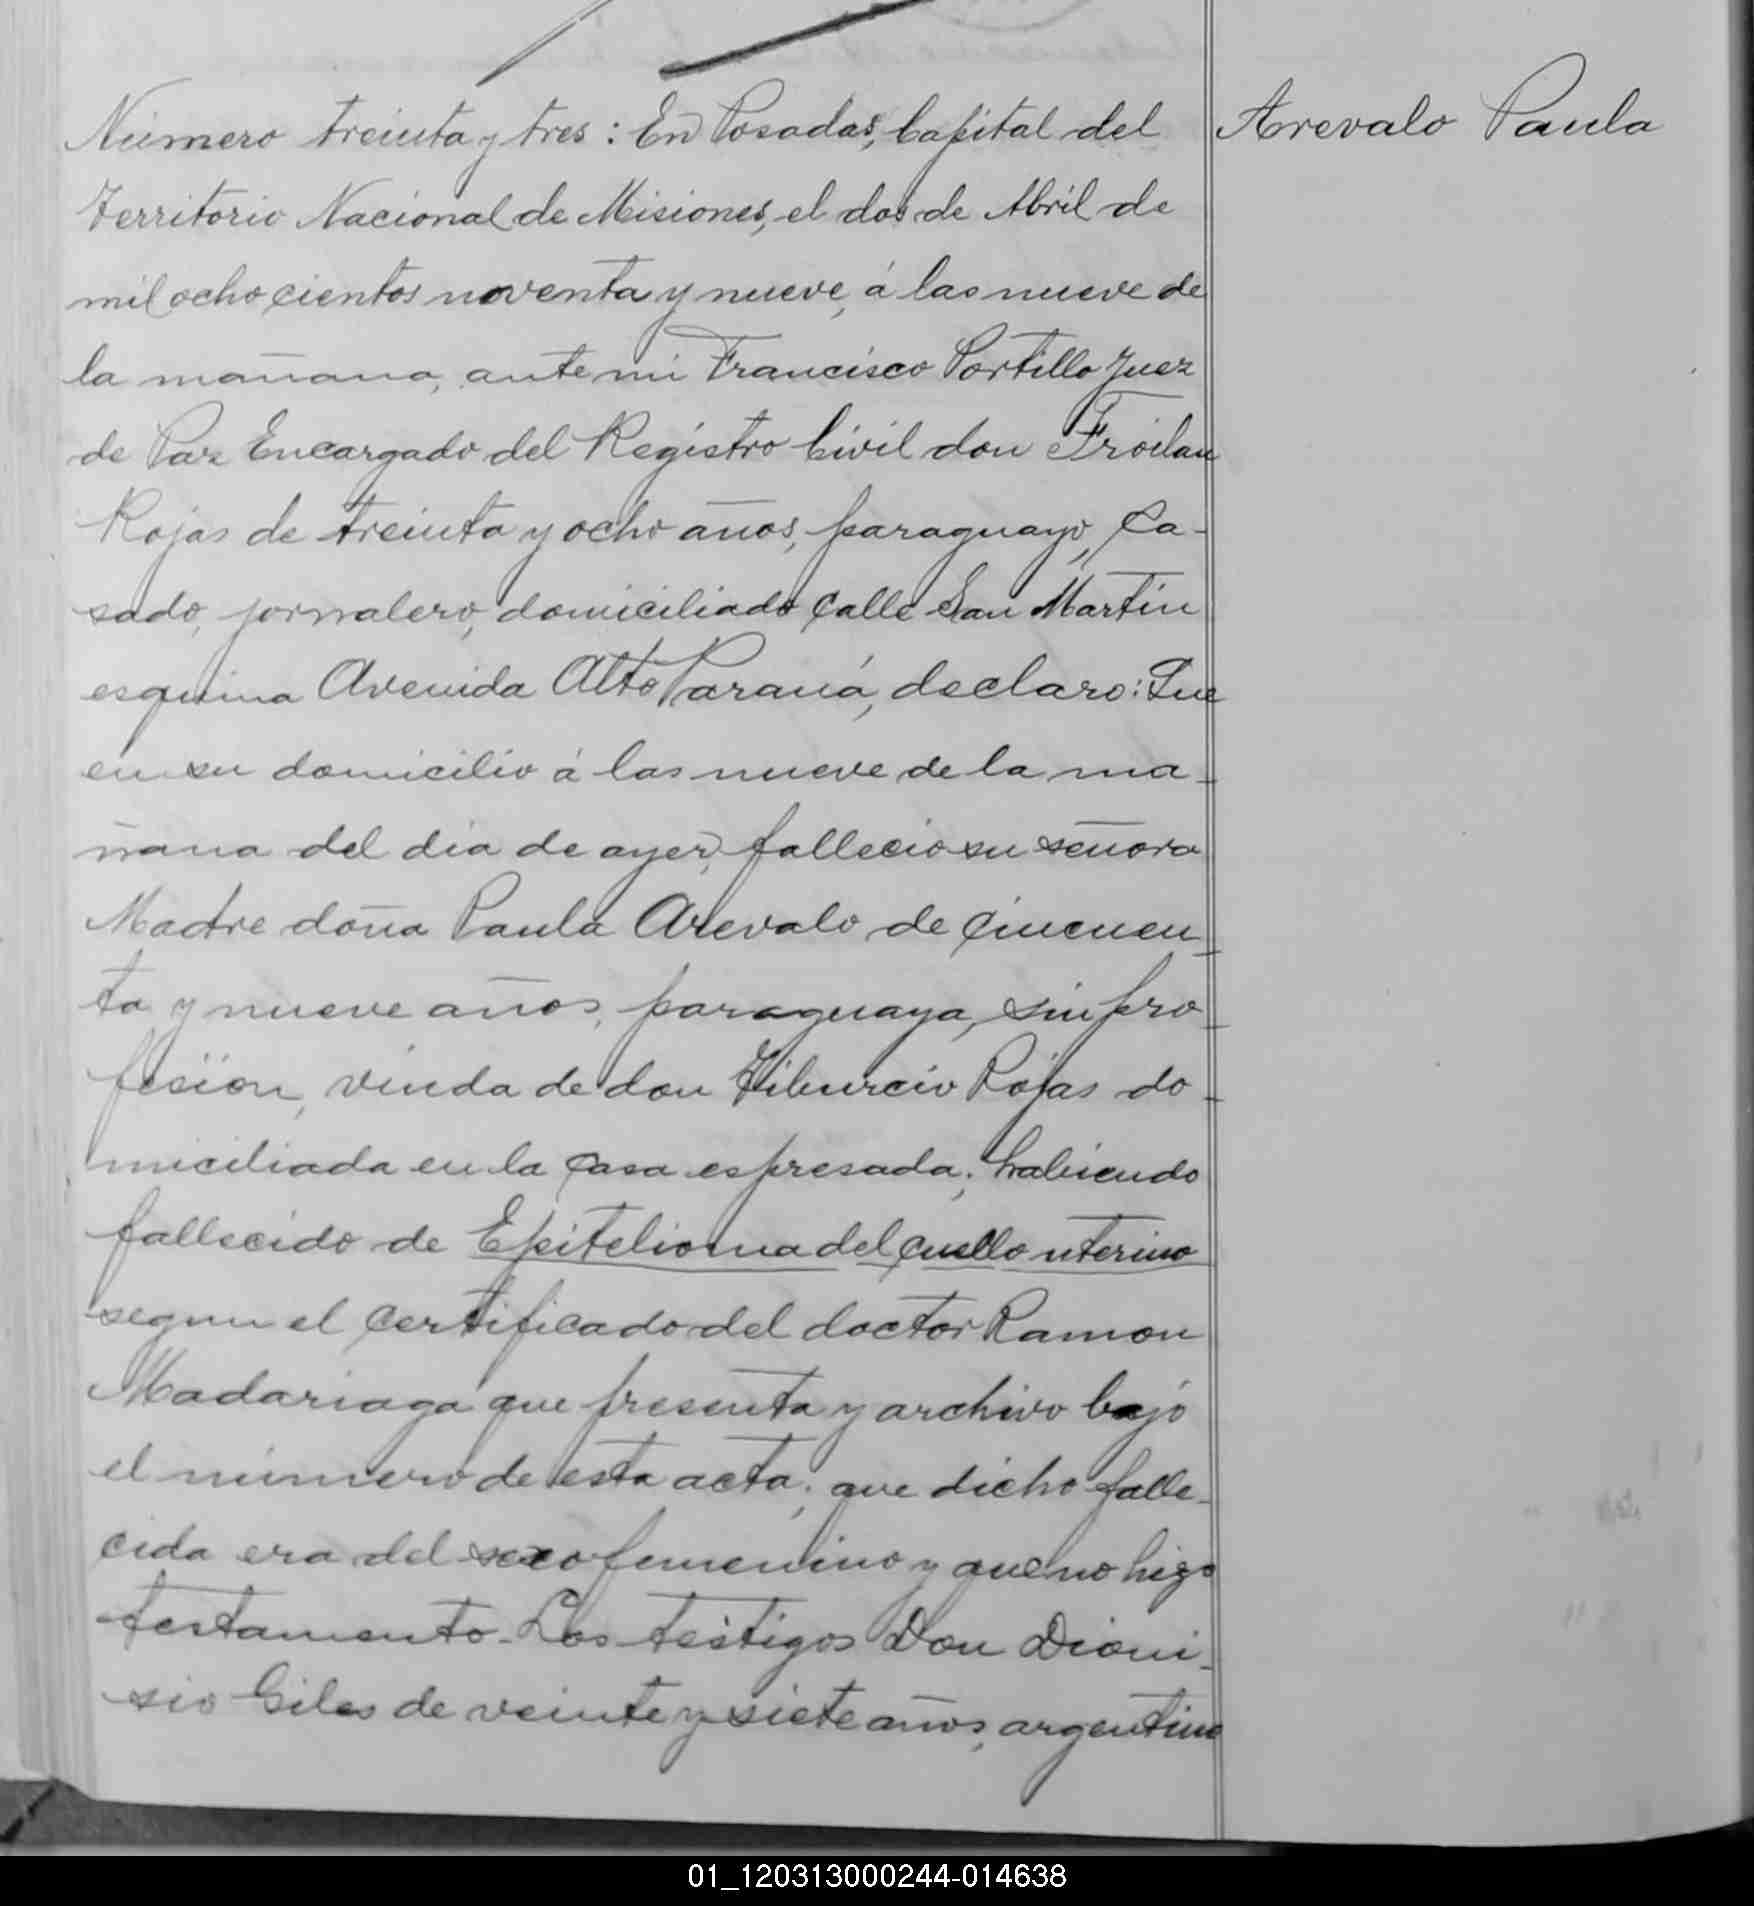 Número treinta y tres: En Posadas, Capital del
Arevalo Paula
Territorio Nacional de Misiones, el dos de Abril de
mil ochocientos noventa y nueve, á las nueve de
la mañana, ante mi Francisco Portillo Juez
de Paz Encargado del Registro Civil don Froilan
Rojas de treinta y ocho años, paraguayo, Ca-
sado, jornalero, domiciliado calle San Martin
esquina Avenida Alto Paraná, declaro: Que
en su domicilio á las nueve de la ma-
ñana del dia de ayer, fallecio su señora
Madre doña Paula Arevalo de Cincuen-
ta y nueve años, paraguaya, sin pro-
fesion, viuda de don Tiburcio Rojas do-
miciliada en la casa espresada; habiendo
fallecido de Epitelioma del cuello uterino
segun el certificado del doctor Ramon
Madariaga que presenta y archivo bajo
el número de esta acta; que dicho falle-
cida era del sexo femenino y que no hizo
testamento. Los testigos Don Dioni-
sio Giles de veinte y siete años, argentino
01_120313000244-014638